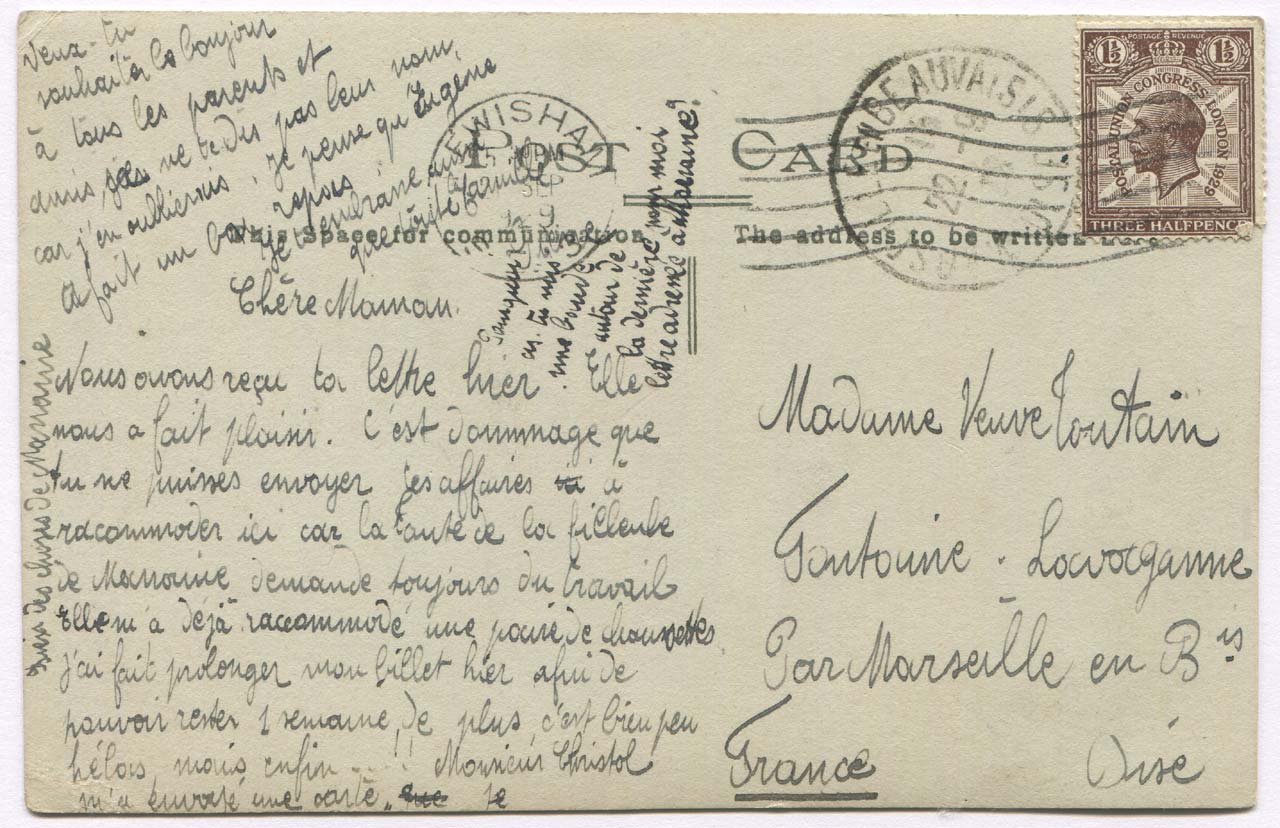 POST CARD
This Space for communication
The address to be written
LEWISHAM
MARSEILLE EN BEAUVAISIS
OISE
22
POSTAGE REVENUE
1½ 1½
POSTAL UNION CONGRESS LONDON 1929
THREE HALFPENCE
Chère Maman.
Nous avons reçu ta lettre hier. Elle
nous a fait plaisir. C'est dommage que
tu ne puisses envoyer les affaires à
racommoder ici car la tante de la filleule
de Marraine demande toujours du travail
Elle m'a déjà raccommodé une paire de chaussettes
J'ai fait prolonger mon billet hier afin de
pouvoir rester 1 semaine de plus, c'est bien peu
hélas, mais enfin ...!! Monsieur Christol
m'a envoyé une carte. que je
Veux-tu
souhaiter le bonjour
à tous les parents et
amis, je ne te dis pas leur nom,
car j'en oublierais. Je pense qu'Eugène
a fait un bon repas
Je t'embrasse ainsi
que toute la famille
Pourquoi
as-tu mis
une bande
autour de
la dernière pour moi
lettre adressée à Marraine?
Bien des choses de Marraine
Madame Veuve Toutain
Fontaine-Lavaganne
Par Marseille en Bis
Oise
France